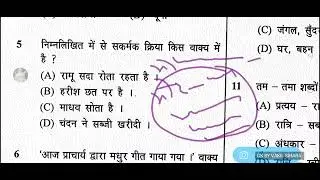 5 निम्नलिखित में से सकर्मक क्रिया किस वाक्य में
है ?
(A) रामू सदा रोता रहता है ।
(B) हरीश छत पर है ।
(C) माधव सोता है ।
(D) चंदन ने सब्जी खरीदी ।
6 'आज प्राचार्य द्वारा मधुर गीत गाया गया ।' वाक्य
(C) जंगल, सुंद
(D) घर, बहन
11 तम – तमा शब्दों
(A) प्रत्यय –
(B) रात्रि –
(C) अंधकार –